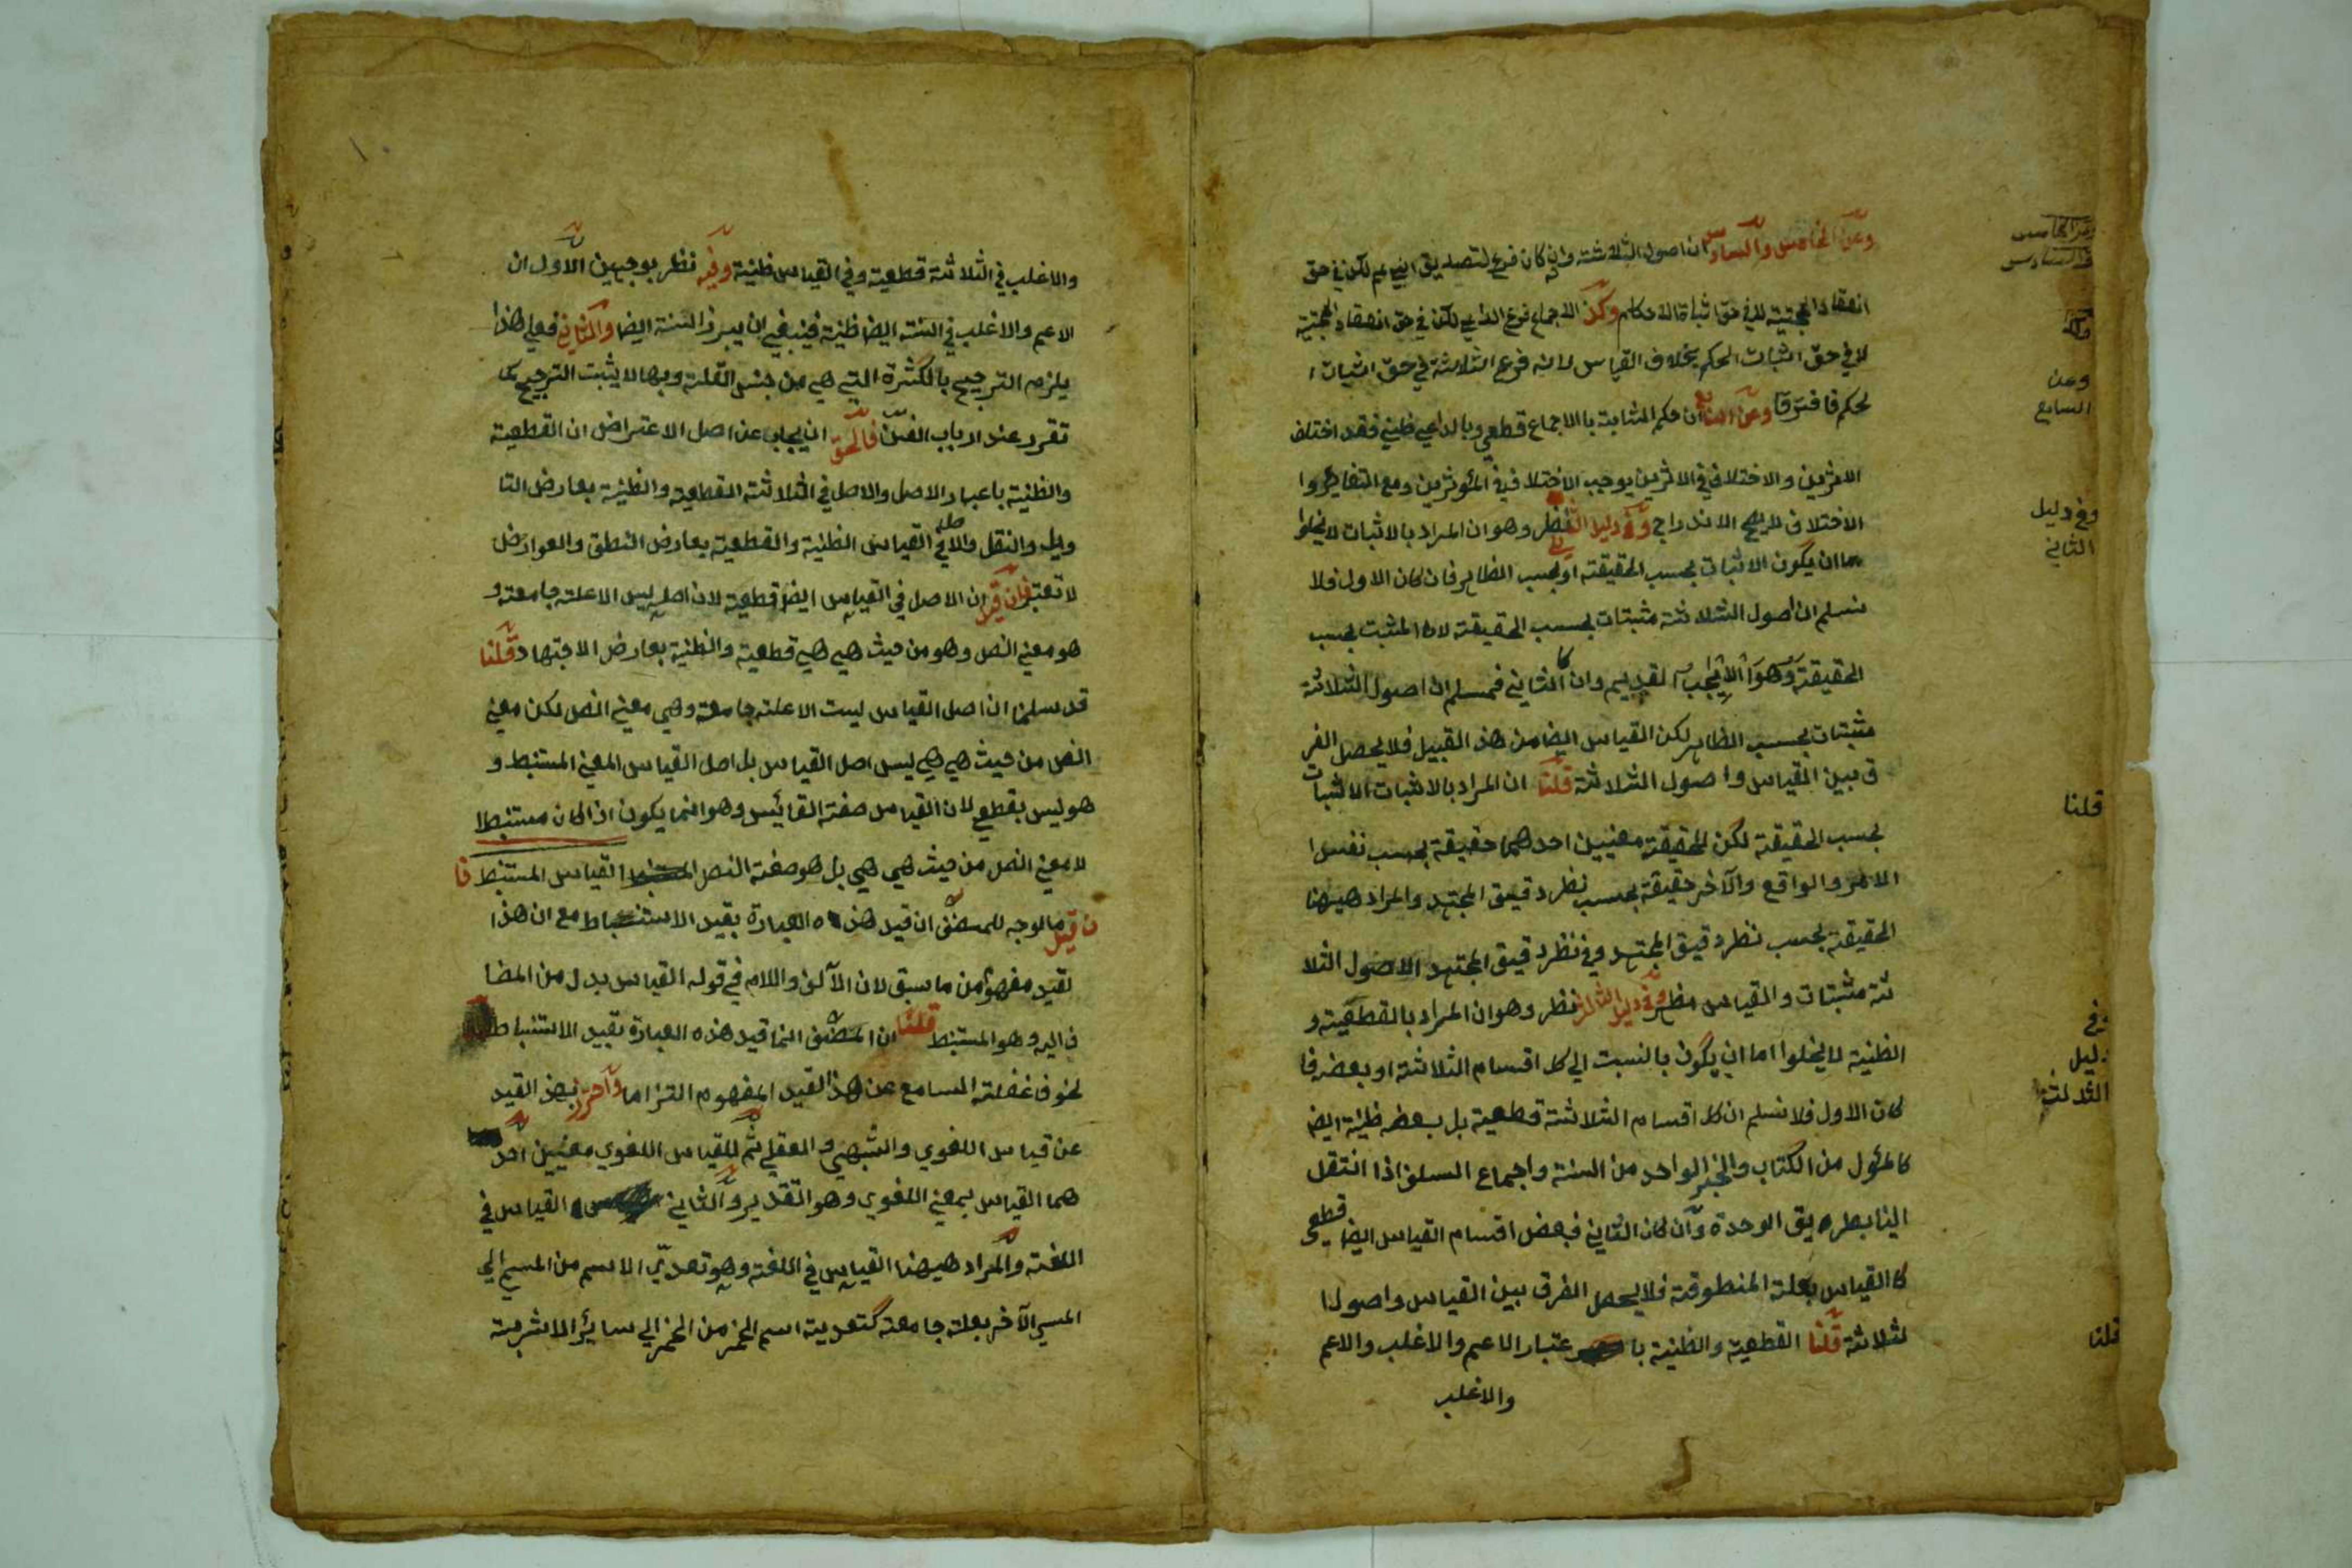 وعن الخامس والسادس ان اصول الثلاثة وان كان فرع لتصديق النبي عم لكن في حق
انعقاد الحجتية لا في حق اثباة الاحكام وكذا الاجماع فرع الداعي لكن في حق انعقاد الحجتية
لا في حق اثبات الحكم بخلاف القياس لانه فرع الثلاثة في حق اثبات ا
لحكم فافترقا وعن السابع ان حكم الثابتة بالاجماع قطعي وبالداعي ظني فقد اختلف
الاثرين والاختلاف في الاثرين يوجب الاختلاف في المؤثرين ومع التغاير وا
الاختلاف لا يصح الاندراج وفي دليل الثاني نظر وهو ان المراد بالاثبات لا يخلوا
اما ان يكون الاثبات بحسب الحقيقة او بحسب الظاهر فان كان الاول فلا
نسلم ان اصول الثلاثة مثبتات بحسب الحقيقة لان المثبت بحسب
الحقيقة وهو الايجاب القديم وان كا الثاني فمسلم ان اصول الثلاثة
مثبتات بحسب الظاهر لكن القياس ايضا من هذ القبيل فلا يحصل الفر
ق بين القياس واصول الثلاثة قلنا ان المراد بالاثبات الاثبات
بحسب الحقيقة لكن للحقيقة معنيين احدهما حقيقة بحسب نفس ا
الامر والواقع والآخر حقيقة بحسب نظر دقيق المجتهد والمراد هيهنا
الحقيقة بحسب نظر دقيق المجتهد وفي نظر دقيق المجتهد الاصول الثلا
ثة مثبتات والقياس مظهر وفي دليل الثالث نظر وهو ان المراد بالقطعية و
الظنية لا يخلوا اما ان يكون بالنسبت الى كل اقسام الثلاثة او بعضه فا
كان الاول فلا نسلم ان كل اقسام الثلاثة قطعية بل بعضه ظنية ايضا
كالمؤل من الكتاب والخبر الواحد من السنة واجماع السلف اذا انتقل
الينا بطريق الوحدة وان كان الثاني فبعض اقسام القياس ايضا قطعي
كالقياس بعلة المنطوقة فلا يحصل الفرق بين القياس واصول ا
لثلاثة قلنا القطعية والظنية با عتبار الاعم والاغلب والاعم
والاغلب
وعن الخامس
والسادس
وكذا
وعن
السابع
وفي دليل
الثاني
قلنا
وفي
دليل
الثالث
قلنا
والاغلب في الثلاثة قطعية وفي القياس ظنية وفيه نظر بوجهين الاول ان
الاعم والاغلب في السنة ايضا ظنية فينبغي ان يبرز السنة ايضا والثاني فعلى هذا
يلزم الترجيح بالكثرة التي هي من جنس القلة وبها لا يثبت الترجيح كما
تقرر عند ارباب الفن فالحق ان يجاب عن اصل الاعتراض ان القطعية
والظنية باعبار الاصل والاصل في الثلاثة القطعية والظنية بعارض التا
ويل والنقل والاصل في القياس الظنية والقطعية بعارض النطق والعوارض
لا تعتبر فان قيل ان الاصل في القياس ايضا قطعية لان اصله ليس الا علة جامعة و
هو معني النص وهو من حيث هي هي قطعية والظنية بعارض الاجتهاد قلنا
قد سلمنا ان اصل القياس ليست الا علة جامعة وهي معني النص لكن معني
النص من حيث هي هي ليس اصل القياس بل اصل القياس المعني المستنبط و
هو ليس بقطعي لان القياس صفة القائس وهو انما يكون اذا كان مستنبطا
لا معني النص من حيث هي هي بل هو صفة النص القياس المستنبط فا
ن قيل ما الوجه للمصنف ان قيد هذه العبارة بقيد الاستنباط مع ان هذا
لقيد مفهوم من ما سبق لان الآلف واللام في قوله القياس بدل من المضا
ف اليه وهو المستنبط قلنا ان المصنف انما قيد هذه العبارة بقيد الاستنباط
لخوف غفلة السامع عن هذا القيد المفهوم التزاما واحترز بهذ القيد
عن قياس اللغوي والشبهي والعقلي ثم للقياس اللغوي معنيين احد
هما القياس بمعني اللغوي وهو التقدير والثاني القياس في
اللغة والمراد هيهنا القياس في اللغة وهو تعدي الاسم من المسمي الي
المسمي الآخر بعلة جامعة كتعدية اسم الخمر من الخمر الي سائر الاشربة